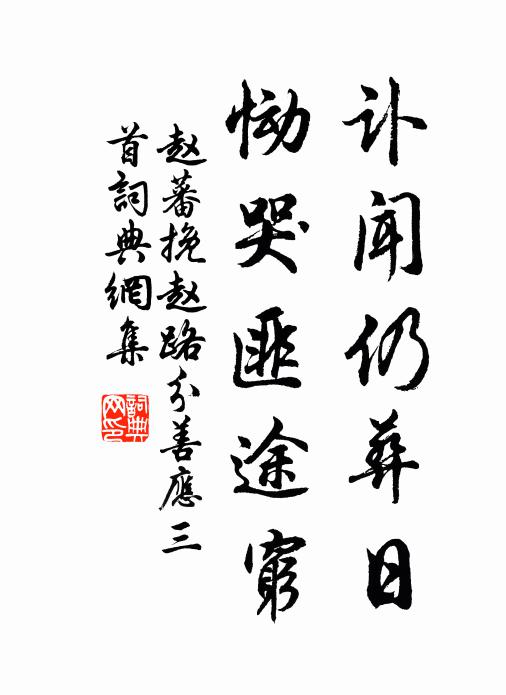 讣闻仍葬日
恸哭匪途窮
赵蕃挽赵路分善應三
首詞典網集
詞典网印